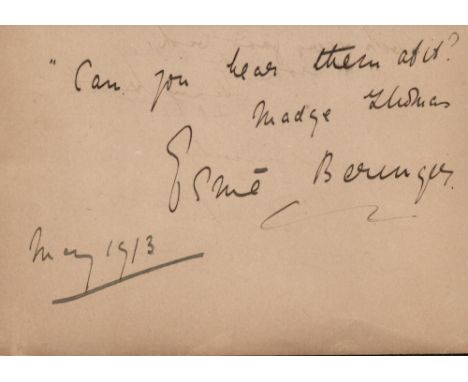 "Can you hear them at it?
Madge Thomas
Esmé Beringer.
May 1913